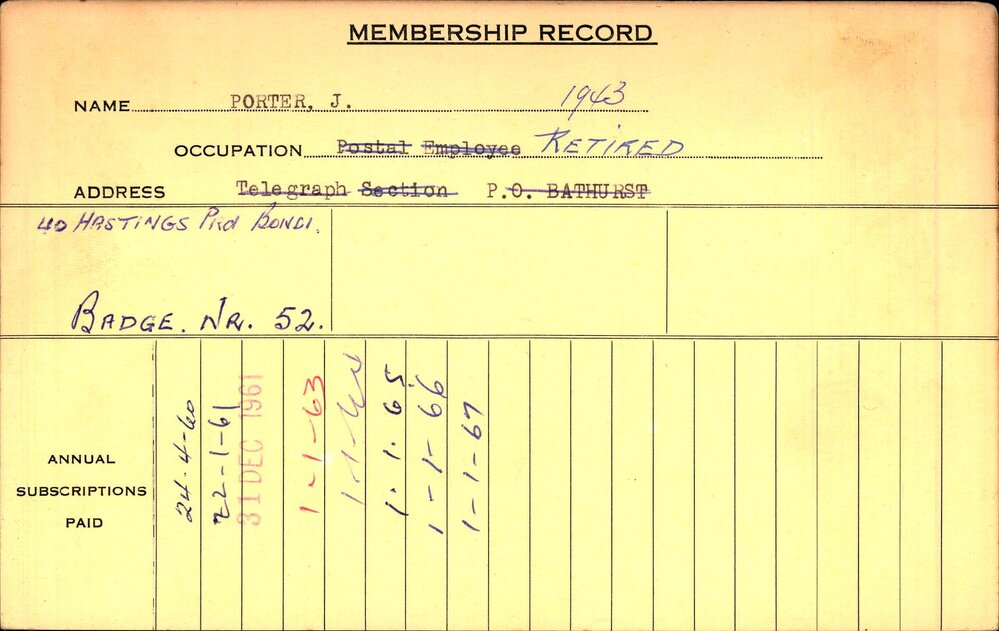 MEMBERSHIP RECORD
NAME PORTER, J. 1943
OCCUPATION Postal Employee RETIRED
ADDRESS Telegraph Section P.O. BATHURST
40 HASTINGS PRD BONDI.
BADGE. NR. 52.
ANNUAL SUBSCRIPTIONS PAID
24-4-60
22-1-61
31 DEC 1961
1-1-63
1-1-64
1.1.65
1-1-66
1-1-67